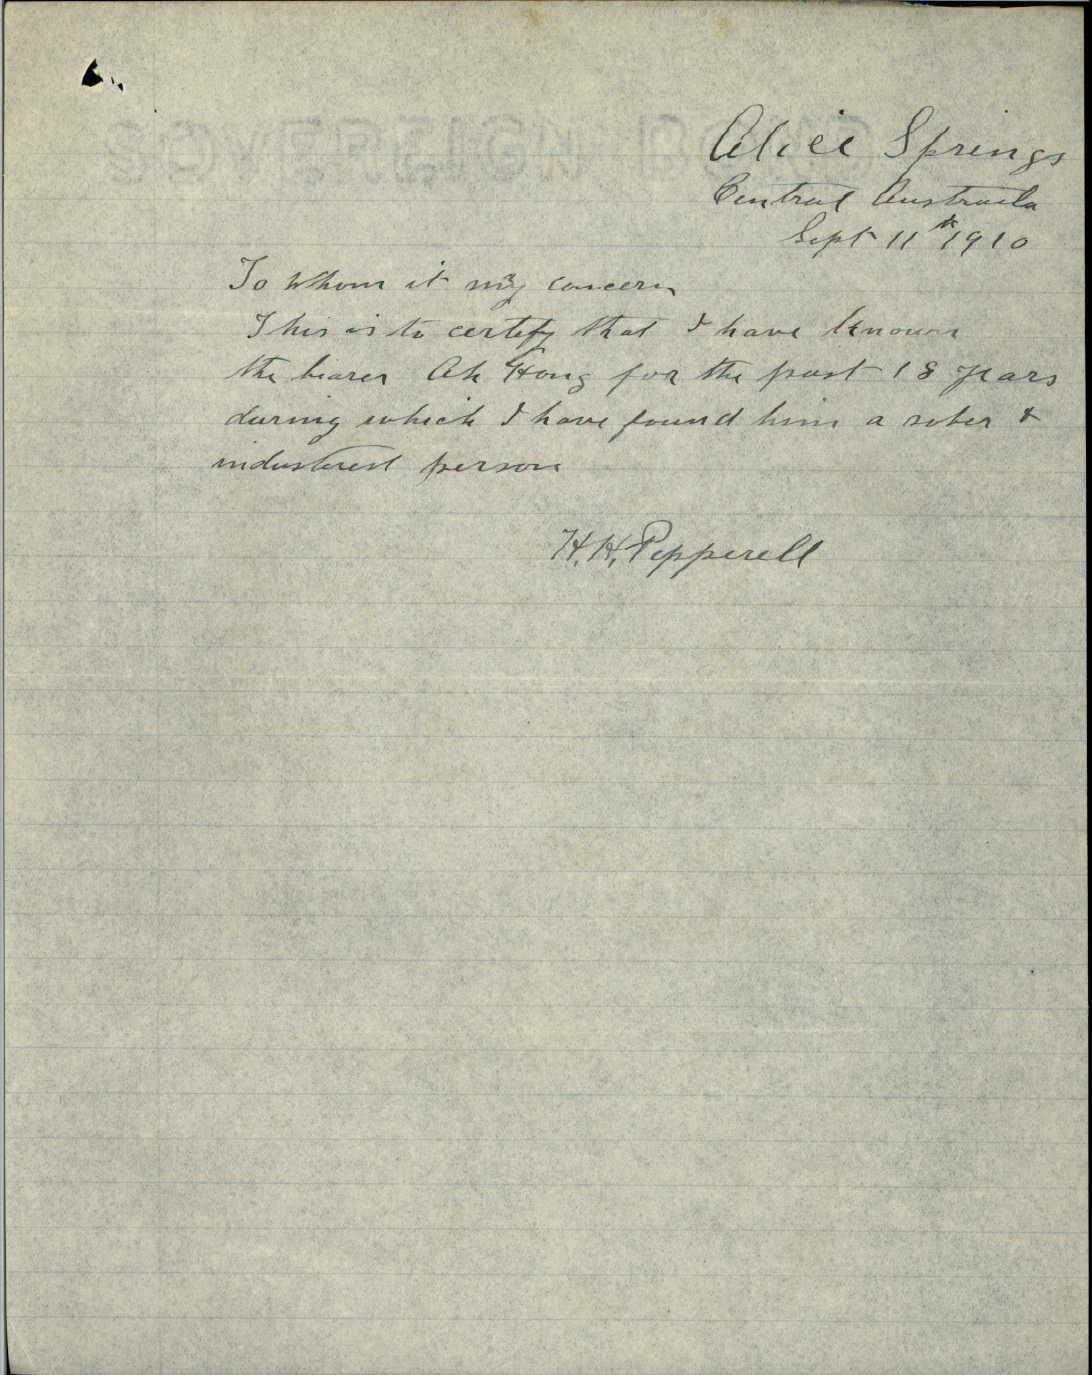 Alice Springs
Central Australa
Sept 11th 1910
To Whom it may concern
This is to certify that I have known
the bearer Ah Hong for the past 18 years
during which I have found him a sober &
industerest person
H.H. Pepperell